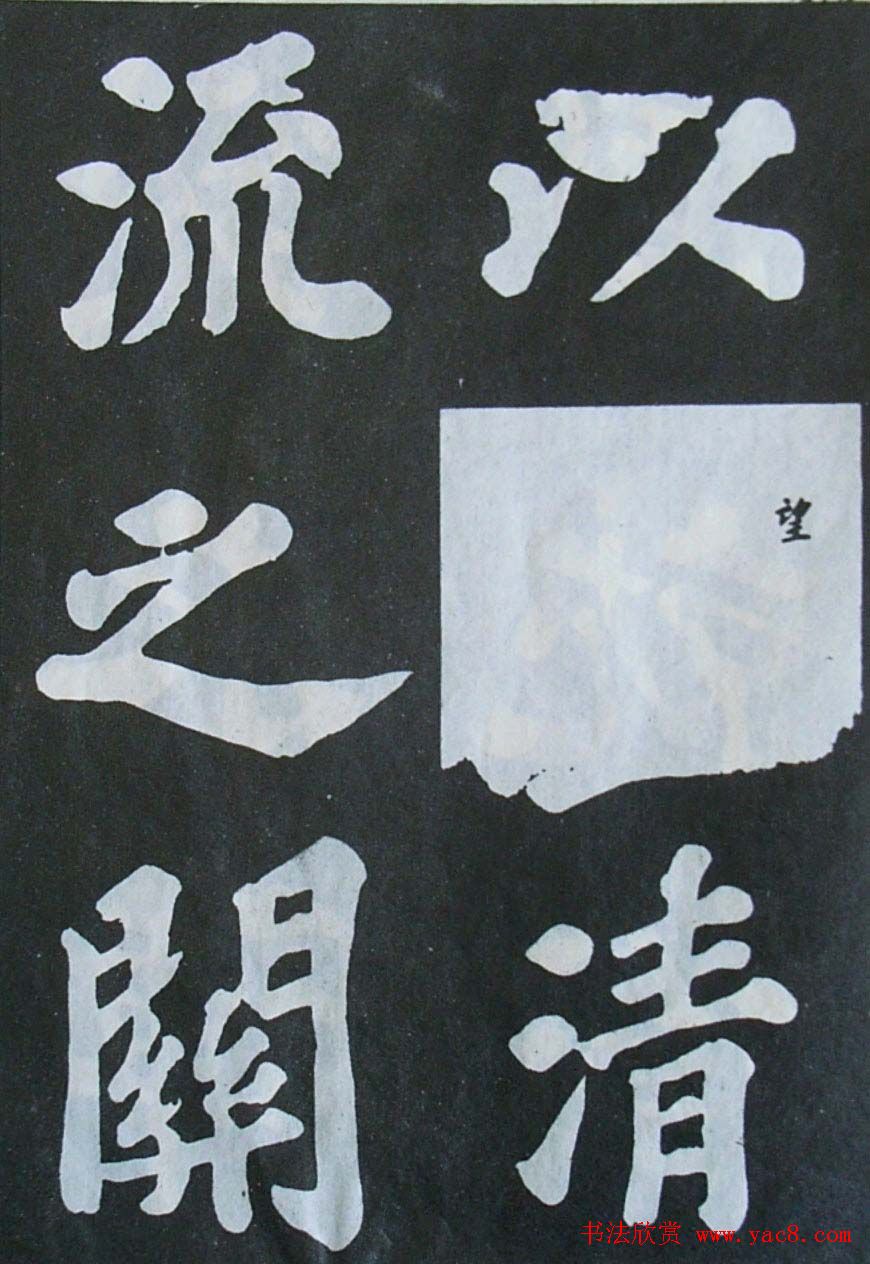 以望清
流之關
书法欣赏 www.yac8.com